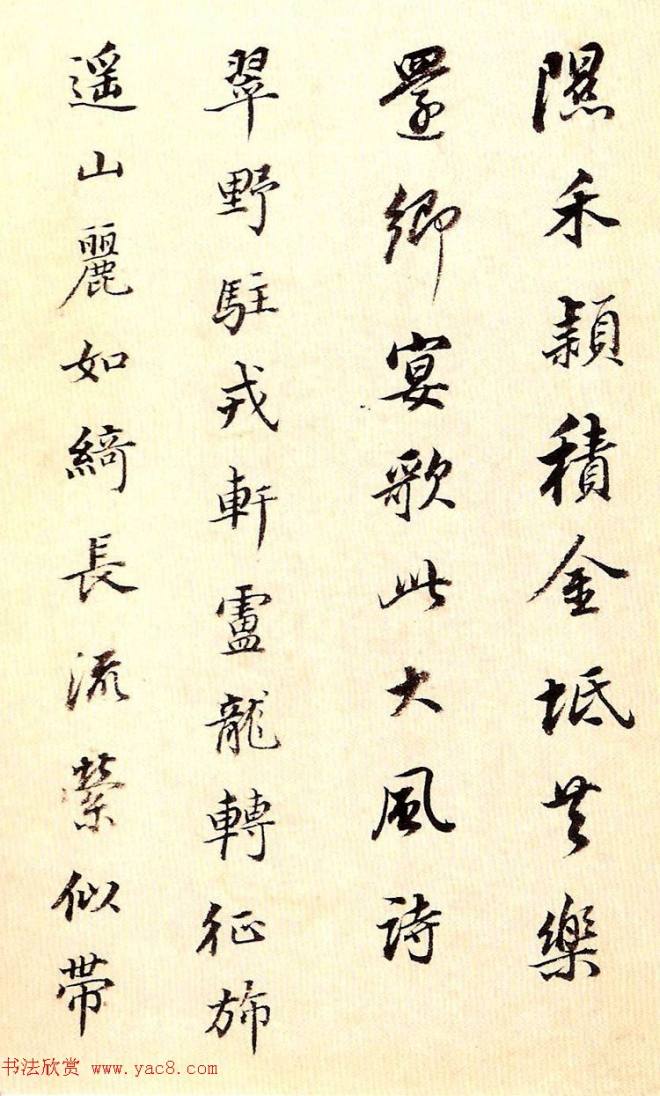 隰禾穎積金坻共樂
還鄉宴歌此大風詩
翠野駐戎軒盧龍轉征旆
遥山麗如綺長流縈似帶
书法欣赏 www.yac8.com